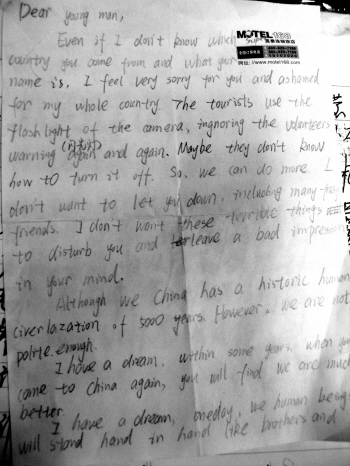 Dear young man,
MOTEL168
网址: //www.motel168.com
Even if I don't know which
country you come from and what your
name is, I feel very sorry for you and ashamed
for my whole country. The tourists use the
flashlight of the camera, ingnoring the volunteers
warning again and again. Maybe they don't know
how to turn it off. So, we can do more. I
don't want to let you down, including many
friends. I don't want these terrible things
to disturb you and leave a bad impression
in your mind.
Although we China has a historic human
civerlazation of 5000 years. However, we are not
polite enough.
I have a dream, within some years, when you
come to China again, you will find we are much
better.
I have a dream, oneday, we human being
will stand hand in hand like brothers and